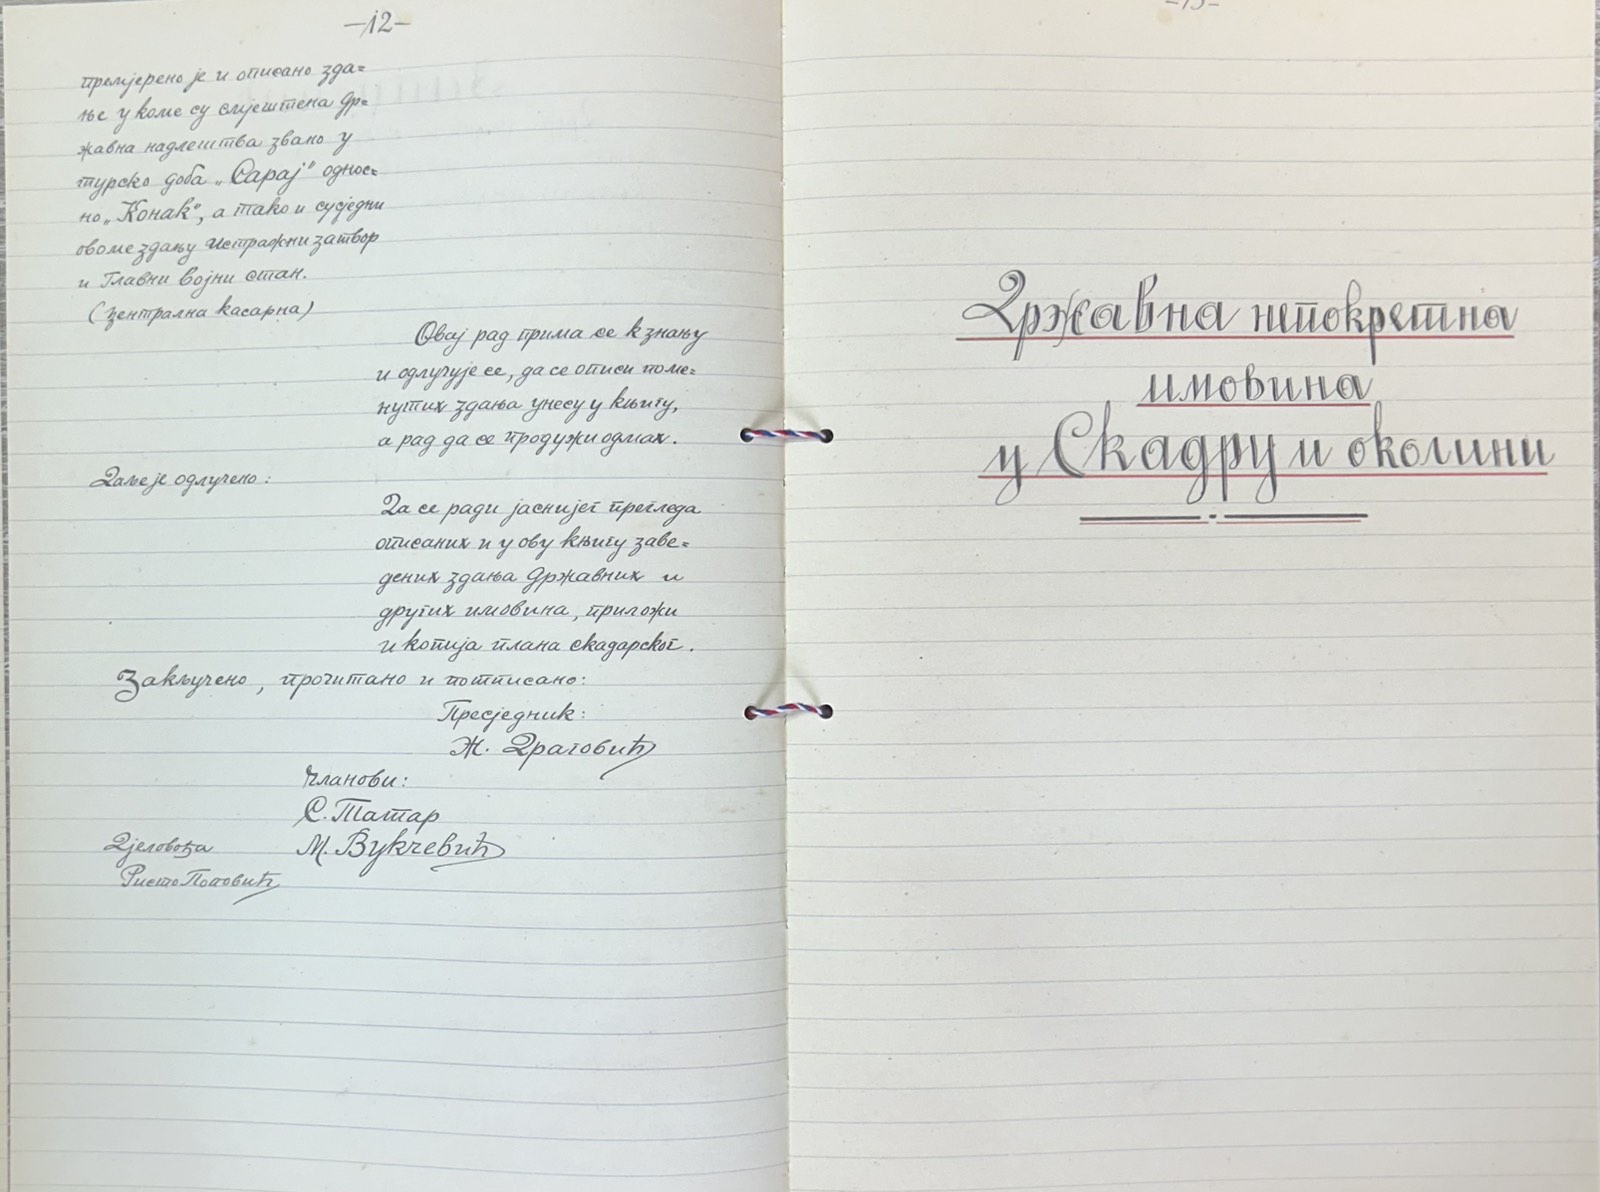 –12–
премјерено је и описано зда=
ње у коме су смјештена др=
жавна надлештва звано у
турско доба „Сарај“ однос=
но „Конак“, а тако и сусједни
овоме здању истражни затвор
и Главни војни стан.
(централна касарна)
Овај рад прима се к знању
и одлучује се, да се описи поме=
нутих здања унесу у књигу,
а рад да се продужи одмах.
Даље је одлучено:
Да се ради јаснијег прегледа
описаних и у ову књигу заве=
дених здања државних и
других имовина, приложи
и копија плана скадарског.
Закључено, прочитано и потписано:
Пресједник:
Ж. Драговић
Чланови:
С. Татар
Дјеловођа
М. Вукчевић
Ристо Поповић
–13–
Државна непокретна
имовина
у Скадру и околини